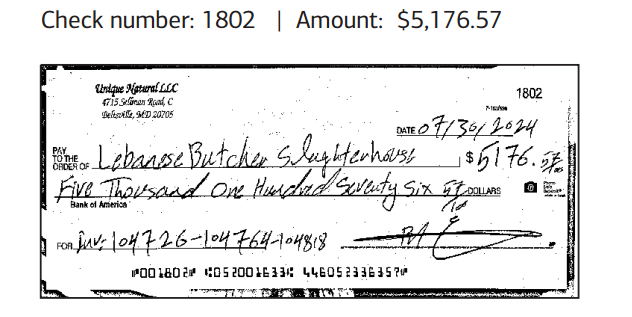 Check number: 1802 | Amount: $5,176.57
Unique Natural LLC
1802
4715 Sellman Road, C
Beltsville, MD 20705
DATE 07/30/2024
PAY TO THE ORDER OF Lebanese Butcher Slaughterhouse $5176.57/00
Five Thousand One Hundred Seventy Six 57/100 DOLLARS
Bank of America
FOR Inv: 104726-104764-104818
⑈001802⑈ ⑆052001633⑆ 446052336357⑈